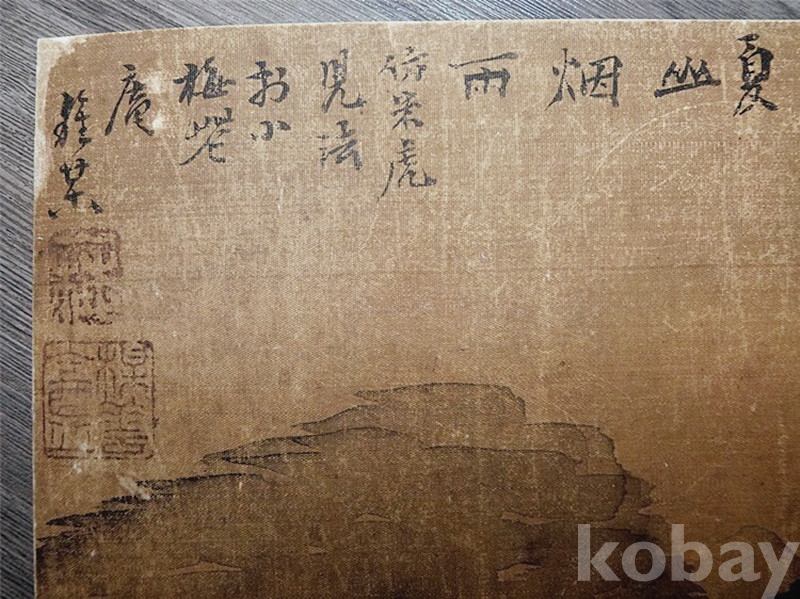 夏山烟雨
仿米虎
兒法
於小
梅花
庵
kobay